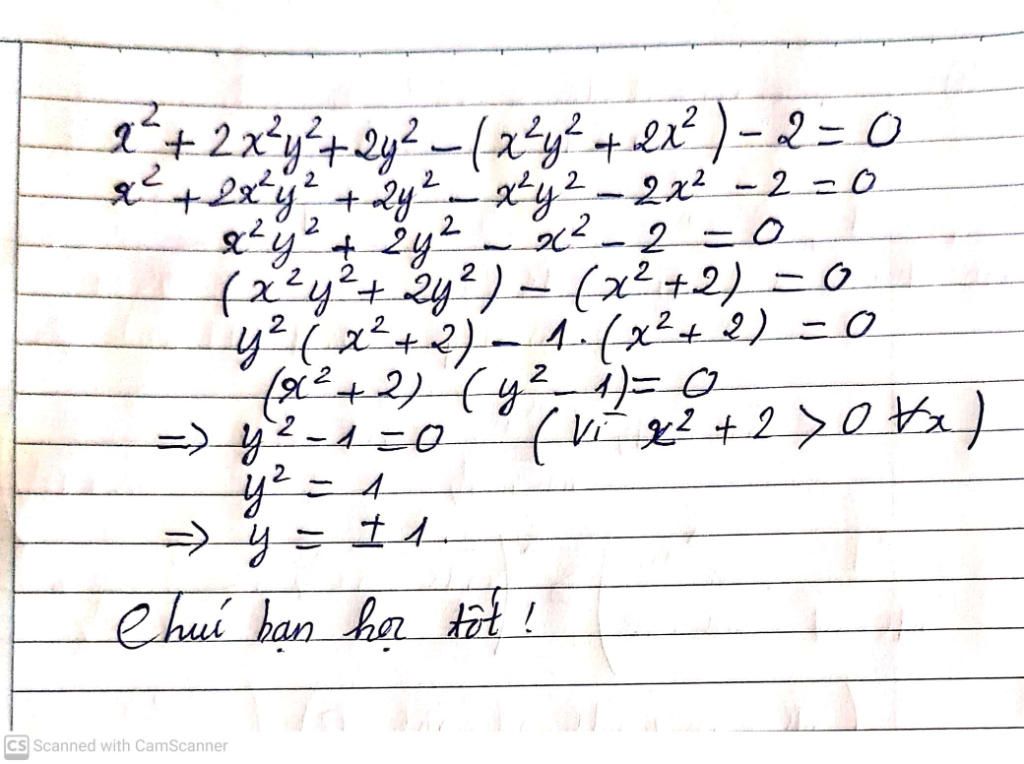 x² + 2x²y² + 2y² – (x²y² + 2x²) – 2 = 0
x² + 2x²y² + 2y² – x²y² – 2x² – 2 = 0
x²y² + 2y² – x² – 2 = 0
(x²y² + 2y²) – (x² + 2) = 0
y² (x² + 2) – 1. (x² + 2) = 0
(x² + 2) (y² – 1) = 0
=> y² – 1 = 0 (Vì x² + 2 > 0 ∀x)
y² = 1
=> y = ± 1.
Chúc bạn học tốt !
CS Scanned with CamScanner